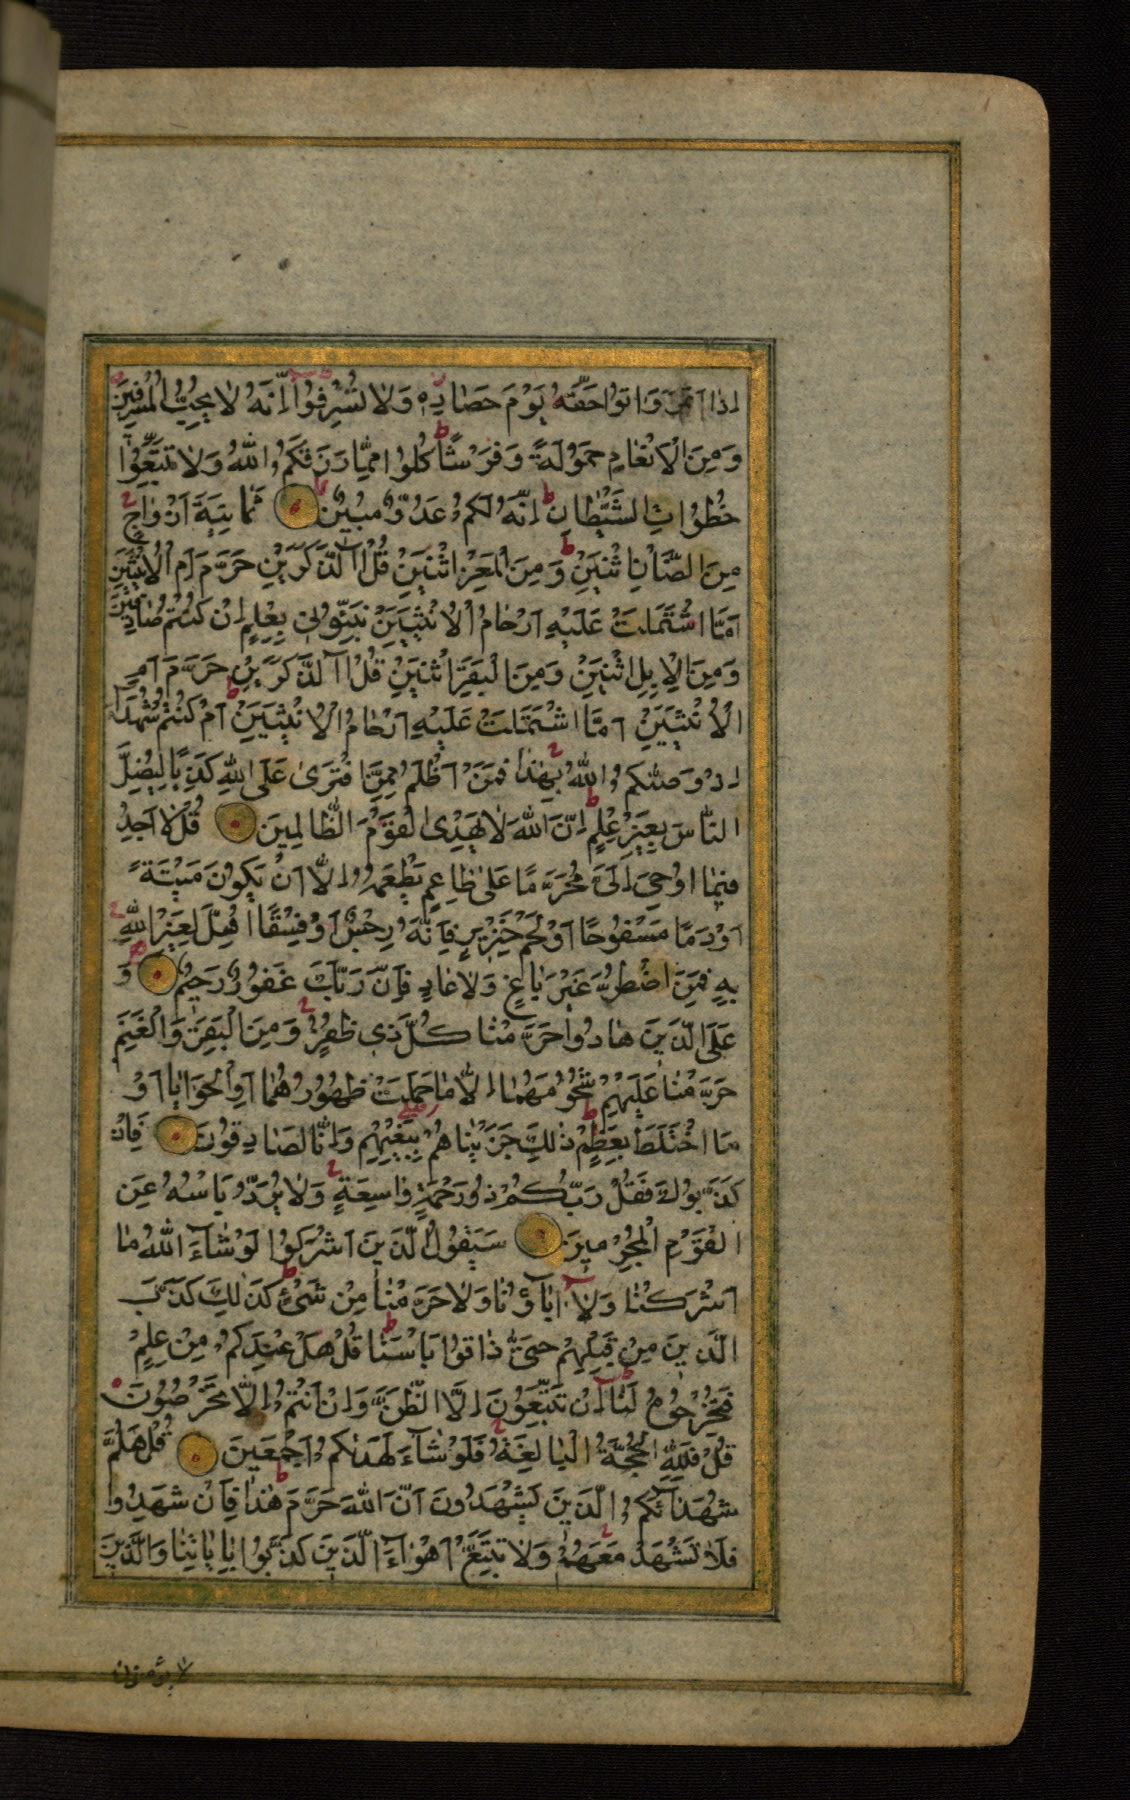 اِذَا اَثْمَرَ وَاٰتُوا حَقَّهُ يَوْمَ حَصَادِهٖ وَلَا تُسْرِفُوا اِنَّهُ لَا يُحِبُّ الْمُسْرِفِينَ
وَمِنَ الْاَنْعَامِ حَمُولَةً وَفَرْشًا كُلُوا مِمَّا رَزَقَكُمُ اللّٰهُ وَلَا تَتَّبِعُوا
خُطُوَاتِ الشَّيْطَانِ اِنَّهُ لَكُمْ عَدُوٌّ مُبِينٌ ثَمَانِيَةَ اَزْوَاجٍ
مِنَ الضَّاْنِ اثْنَيْنِ وَمِنَ الْمَعْزِ اثْنَيْنِ قُلْ اٰلذَّكَرَيْنِ حَرَّمَ اَمِ الْاُنْثَيَيْنِ
اَمَّا اشْتَمَلَتْ عَلَيْهِ اَرْحَامُ الْاُنْثَيَيْنِ نَبِّئُونِى بِعِلْمٍ اِنْ كُنْتُمْ صَادِقِينَ
وَمِنَ الْاِبِلِ اثْنَيْنِ وَمِنَ الْبَقَرِ اثْنَيْنِ قُلْ اٰلذَّكَرَيْنِ حَرَّمَ اَمِ
الْاُنْثَيَيْنِ اَمَّا اشْتَمَلَتْ عَلَيْهِ اَرْحَامُ الْاُنْثَيَيْنِ اَمْ كُنْتُمْ شُهَدَاۤءَ
اِذْ وَصّٰكُمُ اللّٰهُ بِهٰذَا فَمَنْ اَظْلَمُ مِمَّنِ افْتَرَىٰ عَلَى اللّٰهِ كَذِبًا لِيُضِلَّ
النَّاسَ بِغَيْرِ عِلْمٍ اِنَّ اللّٰهَ لَا يَهْدِى الْقَوْمَ الظَّالِمِينَ قُلْ لَا اَجِدُ
فِيمَا اُوحِىَ اِلَىَّ مُحَرَّمًا عَلَىٰ طَاعِمٍ يَطْعَمُهُ اِلَّا اَنْ يَكُونَ مَيْتَةً
اَوْ دَمًا مَسْفُوحًا اَوْ لَحْمَ خِنْزِيرٍ فَاِنَّهُ رِجْسٌ اَوْ فِسْقًا اُهِلَّ لِغَيْرِ اللّٰهِ
بِهٖ فَمَنِ اضْطُرَّ غَيْرَ بَاغٍ وَلَا عَادٍ فَاِنَّ رَبَّكَ غَفُورٌ رَحِيمٌ وَ
عَلَى الَّذِينَ هَادُوا حَرَّمْنَا كُلَّ ذِى ظُفُرٍ وَمِنَ الْبَقَرِ وَالْغَنَمِ
حَرَّمْنَا عَلَيْهِمْ شُحُومَهُمَا اِلَّا مَا حَمَلَتْ ظُهُورُهُمَا اَوِ الْحَوَايَا اَوْ
مَا اخْتَلَطَ بِعَظْمٍ ذٰلِكَ جَزَيْنَاهُمْ بِبَغْيِهِمْ وَاِنَّا لَصَادِقُونَ فَاِنْ
كَذَّبُوكَ فَقُلْ رَبُّكُمْ ذُو رَحْمَةٍ وَاسِعَةٍ وَلَا يُرَدُّ بَاْسُهُ عَنِ
الْقَوْمِ الْمُجْرِمِينَ سَيَقُولُ الَّذِينَ اَشْرَكُوا لَوْ شَاۤءَ اللّٰهُ مَا
اَشْرَكْنَا وَلَاۤ اٰبَاۤؤُنَا وَلَا حَرَّمْنَا مِنْ شَىْءٍ كَذٰلِكَ كَذَّبَ
الَّذِينَ مِنْ قَبْلِهِمْ حَتّٰى ذَاقُوا بَاْسَنَا قُلْ هَلْ عِنْدَكُمْ مِنْ عِلْمٍ
فَتُخْرِجُوهُ لَنَاۤ اِنْ تَتَّبِعُونَ اِلَّا الظَّنَّ وَاِنْ اَنْتُمْ اِلَّا تَخْرُصُونَ
قُلْ فَلِلّٰهِ الْحُجَّةُ الْبَالِغَةُ فَلَوْ شَاۤءَ لَهَدٰىكُمْ اَجْمَعِينَ قُلْ هَلُمَّ
شُهَدَاۤءَكُمُ الَّذِينَ يَشْهَدُونَ اَنَّ اللّٰهَ حَرَّمَ هٰذَا فَاِنْ شَهِدُوا
فَلَا تَشْهَدْ مَعَهُمْ وَلَا تَتَّبِعْ اَهْوَاۤءَ الَّذِينَ كَذَّبُوا بِاٰيَاتِنَا وَالَّذِينَ
لا يؤمنون